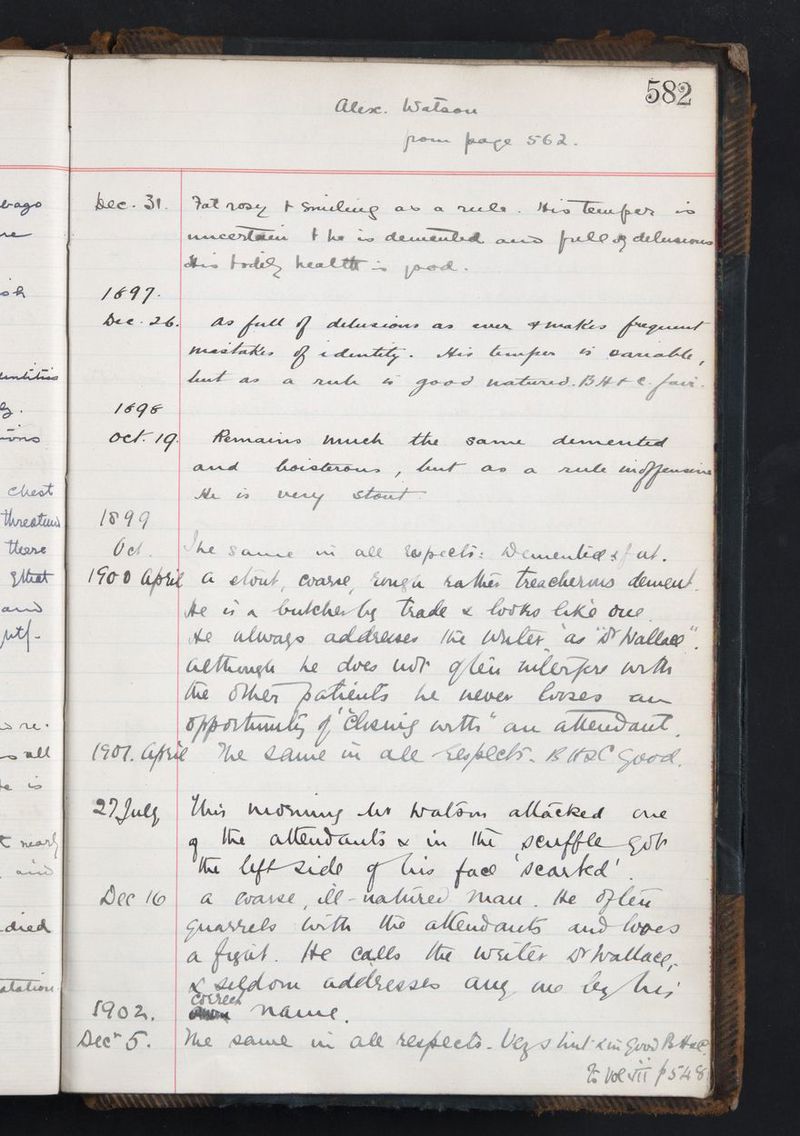 582
Alex. Watson
from page 562.
bago
Dec. 31. Fat rosy & smiling as a rule. His temper is
uncertain & he is demented and full of delusions
His bodily health is good.
1897.
Dec. 26. As full of delusions as ever & makes frequent
mistakes of identity. His temper is variable,
but as a rule is good natured. B H & C. fair.
1898
Oct. 19. Remains much the same demented
and boisterous, but as a rule inoffensive
He is very stout.
chest
1899
threatens
there
Oct. The same in all respects: Demented & fat.
that
1900 April A stout, coarse, rough rather treacherous dement.
and
He is a butcher by trade & looks like one.
He always addresses the writer as "Dr Wallace".
Although he does not often interfere with
the other patients he never looses an
opportunity of "closing with" an attendant.
all
1901. April The same in all respects. B H & C good.
is
27 July This morning Mr Watson attacked one
of the attendants & in the scuffle got
the left side of his face 'scarted'.
Dec 16 A coarse, ill-natured man. He often
died
quarrels with the attendants and loves
a fight. He calls the writer Dr Wallace,
& seldom addresses any one by his
correct
1902. name.
Decr 5. The same in all respects. Very stout & in good B H & C.
To Vol VII p 548